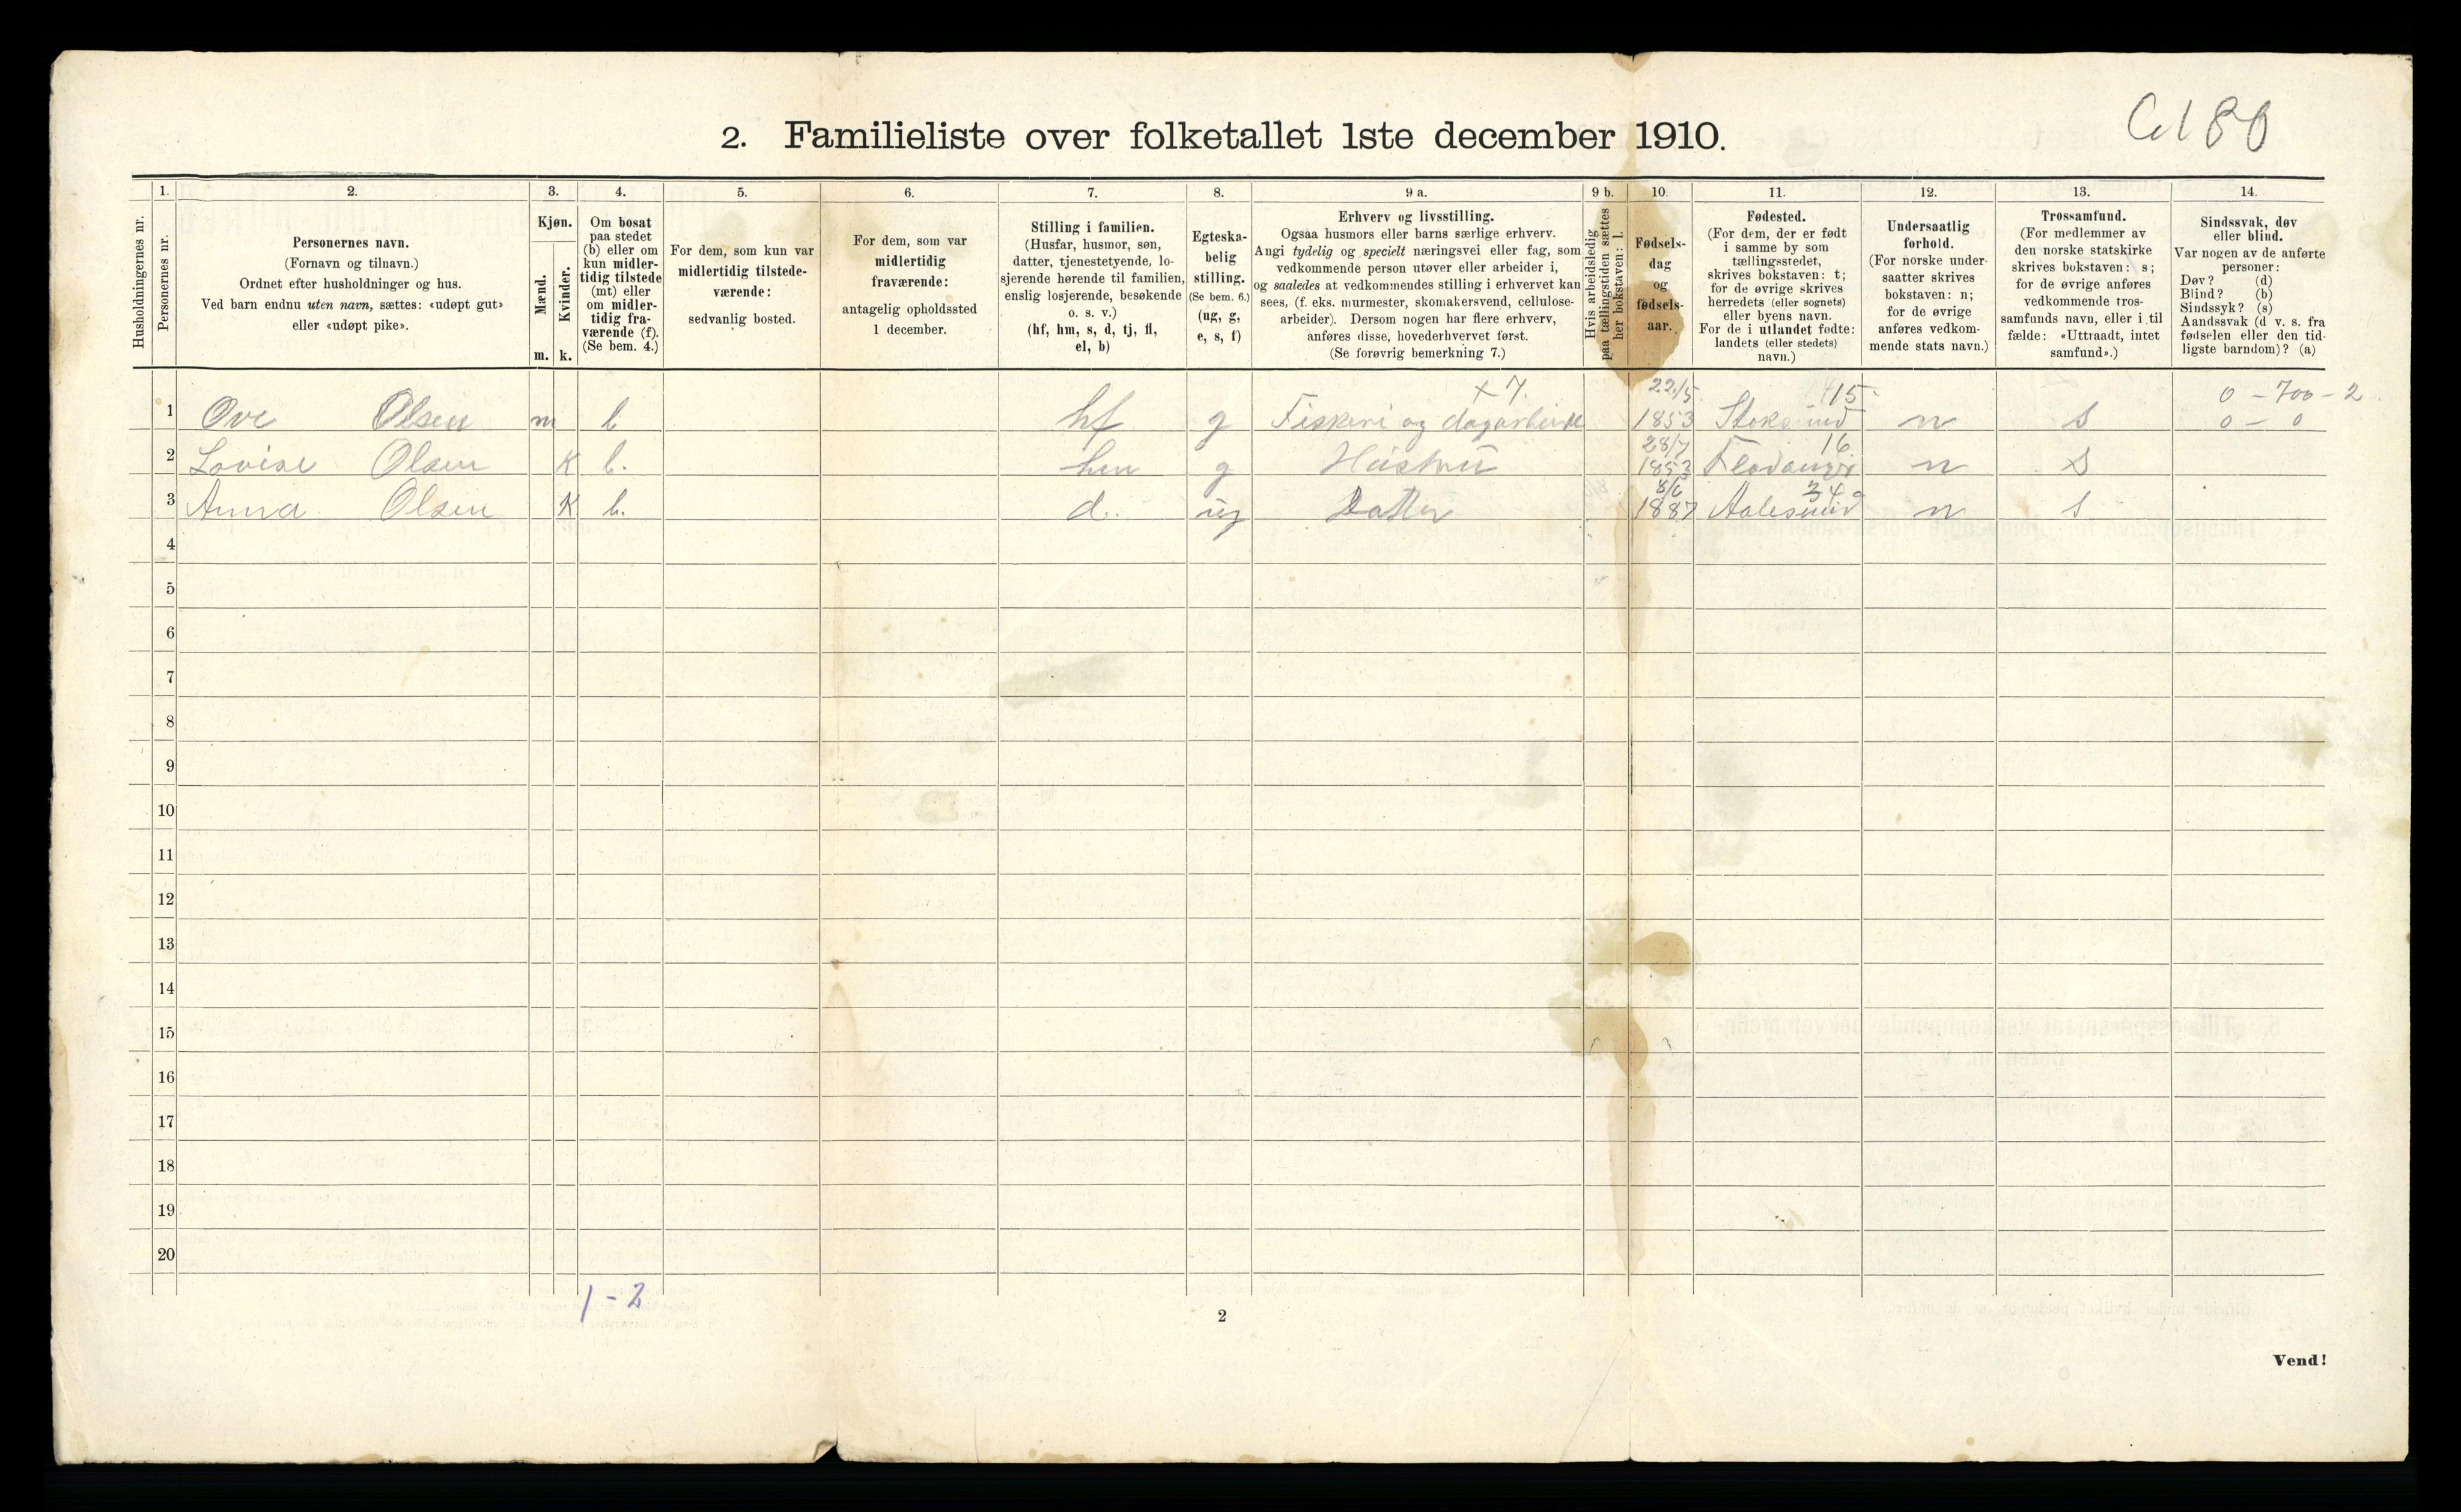 2. Familieliste over folketallet 1ste december 1910.
1. 2. 3. 4. 5. 6. 7. 8. 9 a. 9 b. 10. 11. 12. 13. 14.
Husholdningernes nr.
Personernes nr.
Personernes navn.
(Fornavn og tilnavn.)
Ordnet efter husholdninger og hus.
Ved barn endnu uten navn, sættes: «udøpt gut»
eller «udøpt pike».
Kjøn.
Mænd.
Kvinder.
m. k.
Om bosat
paa stedet
(b) eller om
kun midler-
tidig tilstede
(mt) eller
om midler-
tidig fra-
værende (f).
(Se bem. 4.)
For dem, som kun var
midlertidig tilstede-
værende:
sedvanlig bosted.
For dem, som var
midlertidig
fraværende:
antagelig opholdssted
1 december.
Stilling i familien.
(Husfar, husmor, søn,
datter, tjenestetyende, lo-
sjerende hørende til familien,
enslig losjerende, besøkende
o. s. v.)
(hf, hm, s, d, tj, fl,
el, b)
Egteska-
belig
stilling.
(Se bem. 6.)
(ug, g,
e, s, f)
Erhverv og livsstilling.
Ogsaa husmors eller barns særlige erhverv.
Angi tydelig og specielt næringsvei eller fag, som
vedkommende person utøver eller arbeider i,
og saaledes at vedkommendes stilling i erhvervet kan
sees, (f. eks. murmester, skomakersvend, cellulose-
arbeider). Dersom nogen har flere erhverv,
anføres disse, hovederhvervet først.
(Se forøvrig bemerkning 7.)
Hvis arbeidsledig
paa tællingstiden sættes
her bokstaven: l.
Fødsels-
dag
og
fødsels-
aar.
Fødested.
(For dem, der er født
i samme by som
tællingsstedet,
skrives bokstaven: t;
for de øvrige skrives
herredets (eller sognets)
eller byens navn.
For de i utlandet fødte:
landets (eller stedets)
navn.)
Undersaatlig
forhold.
(For norske under-
saatter skrives
bokstaven: n;
for de øvrige
anføres vedkom-
mende stats navn.)
Trossamfund.
(For medlemmer av
den norske statskirke
skrives bokstaven: s;
for de øvrige anføres
vedkommende tros-
samfunds navn, eller i til
fælde: «Uttraadt, intet
samfund».)
Sindssvak, døv
eller blind.
Var nogen av de anførte
personer:
Døv? (d)
Blind? (b)
Sindssyk? (s)
Aandssvak (d v. s. fra
fødselen eller den tid-
ligste barndom)? (a)
+ 7. 22/5 15 0 - 700 - 2
1 Ove Olsen m b hf g Fiskeri og dagarbeide 1853 n s 0 - 0
28/7 16
2 Lovise Olsen K b. hm g Hustru 1853 n s
8/6 34
3 Anna Olsen K b. d. ug Datter 1887 Aalesund n s
4
5
6
7
8
9
10
11
12
13
14
15
16
17
18
19
20
1 - 2
2
Vend!